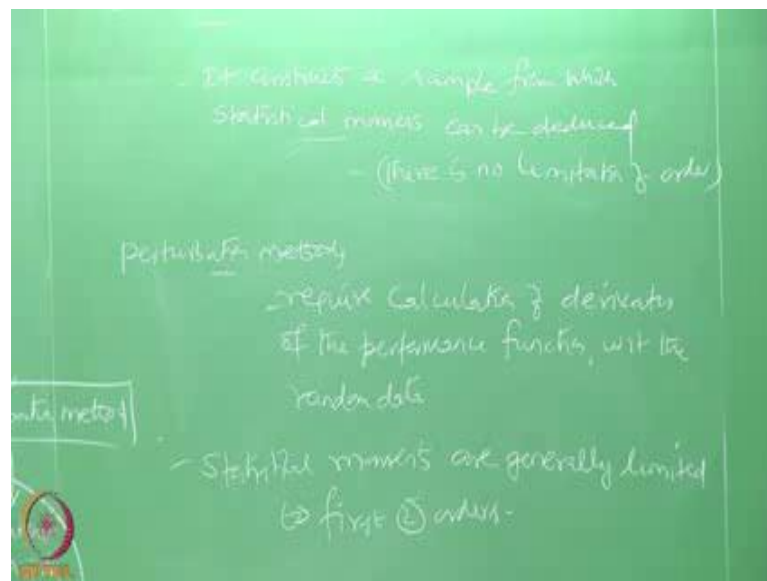 - It constructs a sample from which
statistical moments can be deduced
- (there is no limitation of order)
Perturbation methods
- require calculation of derivatives
of the performance function, wrt the
random data
method
- Statistical moments are generally limited
to first ② orders.